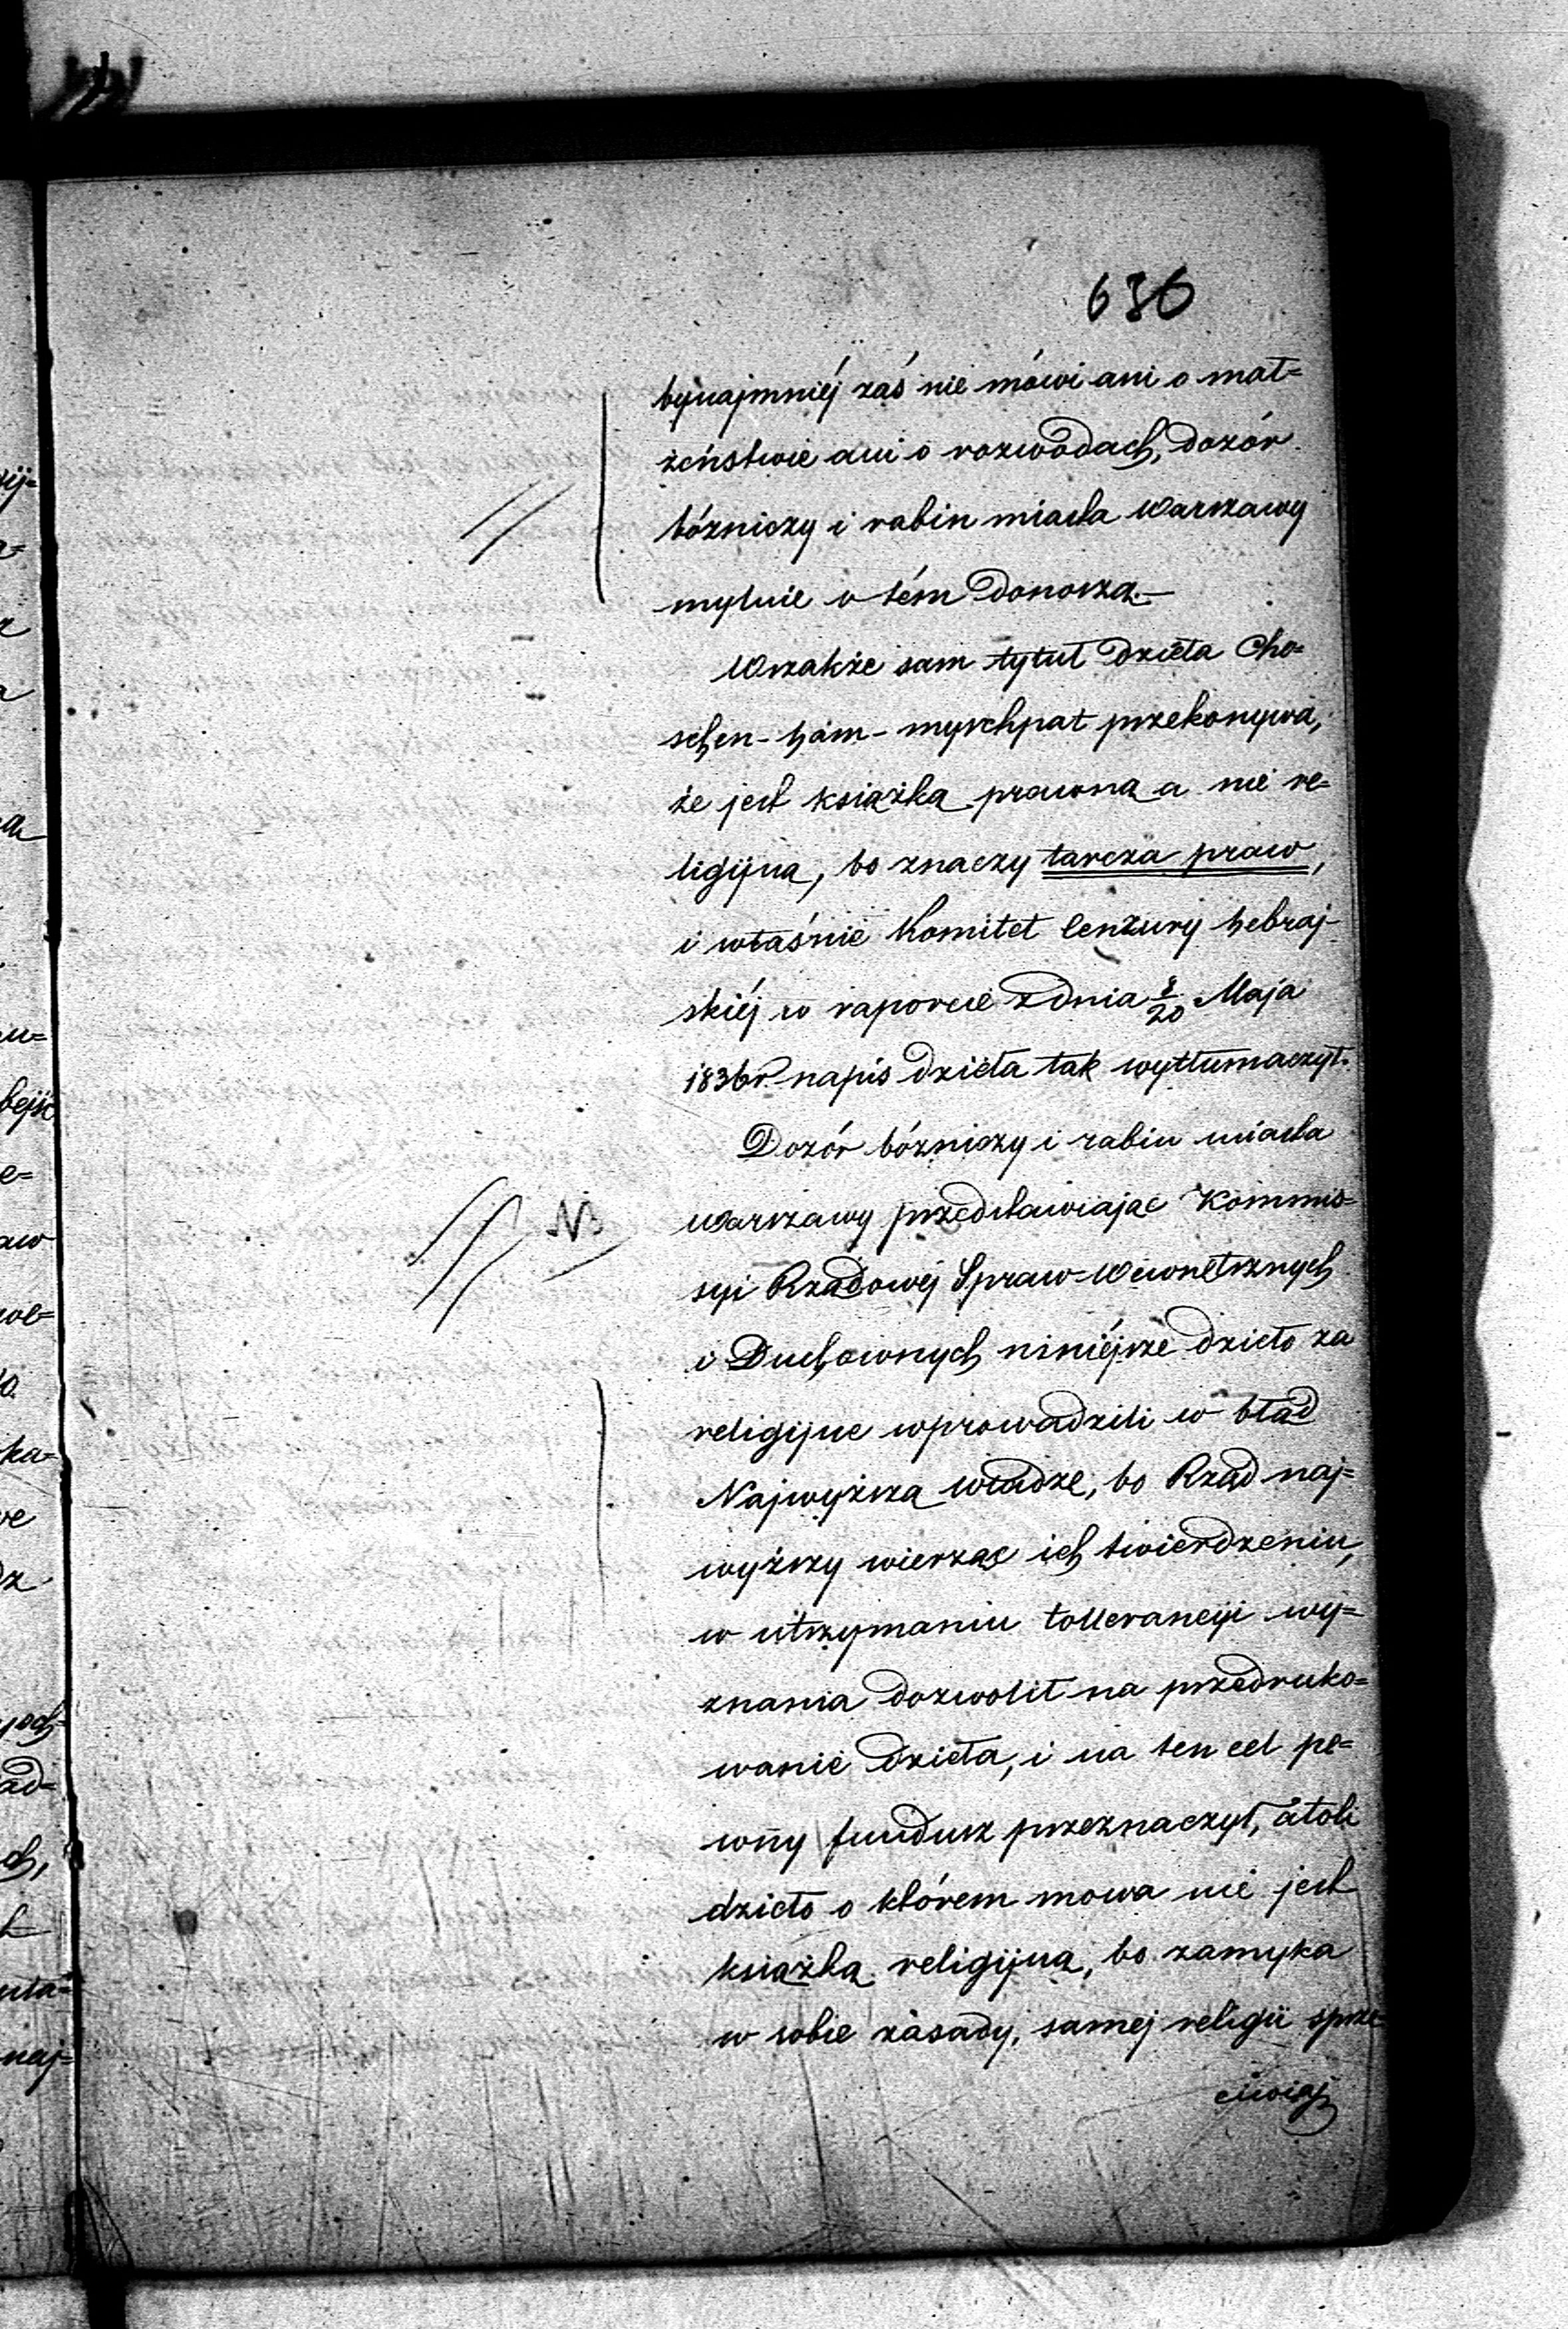 636
bynajmniéj zaś nie mówi ani o mał=
żeństwie ani o rozwodach, dozór
bóżniczy i rabin miasta Warszawy
mylnie o tém donoszą.—
Wszakże sam tytuł dzieła Cho=
schen-ham-myschpat przekonywa,
że jest książką prawną a nie re=
ligijną, bo znaczy tarcza praw,
i właśnie Komitet Cenzury hebraj-
skiéj w raporcie z dnia 8/20 Maja
1836 r. napis dzieła tak wytłumaczył.
Dozór bóżniczy i rabin miasta
Warszawy przedstawiając Kommis=
syi Rządowéj Spraw Wewnętrznych
i Duchownych niniéjsze dzieło za
religijne wprowadzili w błąd
Najwyższą władzę, bo Rząd naj=
wyższy wierząc ich twierdzeniu,
w utrzymaniu tollerancyi wy=
znania dozwolił na przedruko=
wanie dzieła, i na ten cel pe=
wny fundusz przeznaczył, atoli
dzieło o którem mowa nie jest
książką religijną, bo zamyka
w sobie zasady, samej religii sprze
ciwiaj